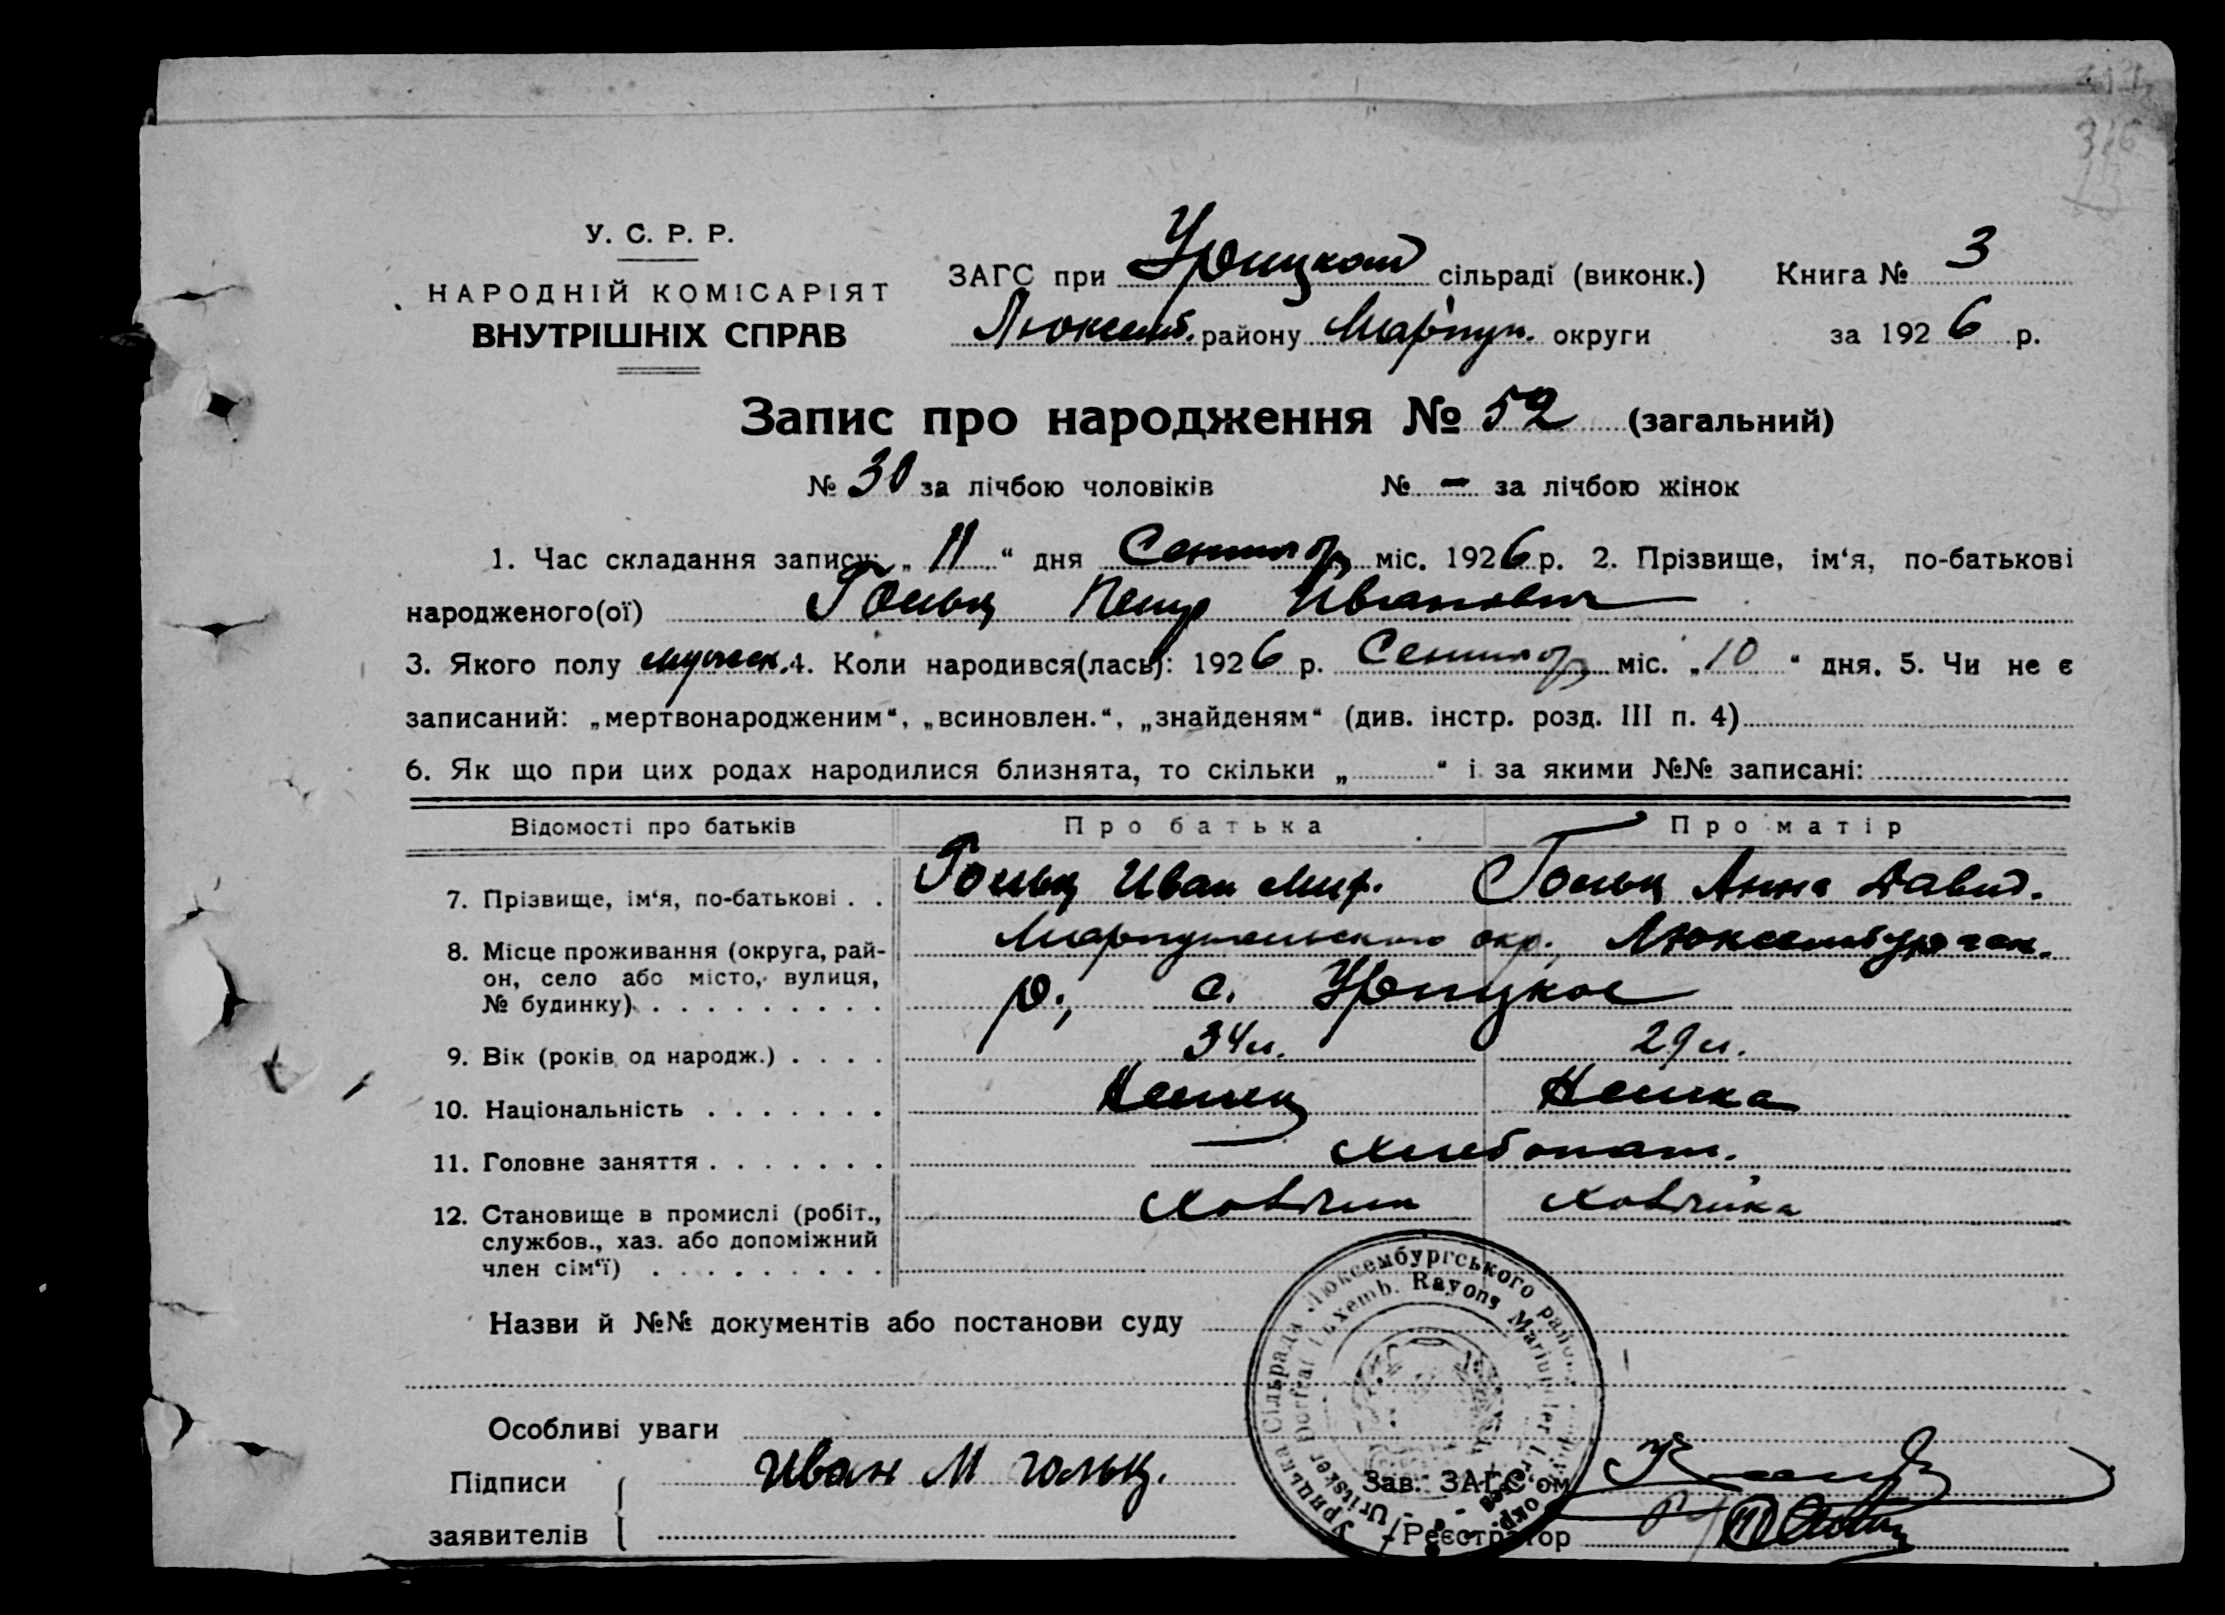 316
У. С. Р. Р.
НАРОДНІЙ КОМІСАРІЯТ
ВНУТРІШНІХ СПРАВ
ЗАГС при Урицком сільраді (виконк.) Книга № 3
Люксемб. району Маріуп. округи за 1926 р.
Запис про народження № 52 (загальний)
№ 30 за лічбою чоловіків № – за лічбою жінок
1. Час складання запису: „ 11 “ дня Сентябр міс. 1926 р. 2. Прізвище, ім‘я, по-батькові
народженого(ої) Гольц Петр Иванович
3. Якого полу мужеск. 4. Коли народився(лась): 1926 р. Сентябр міс. „ 10 “ дня. 5. Чи не є
записаний: „мертвонародженим“, „всиновлен.“, „знайденям“ (див. інстр. розд. III п. 4)
6. Як що при цих родах народилися близнята, то скільки „ “ і за якими №№ записані:
Відомості про батьків Про батька Про матір
7. Прізвище, ім‘я, по-батькові . . Гольц Иван Мир. Гольц Анна Давид.
8. Місце проживання (округа, рай- Мариупольского окр., Люксембургск.
он, село або місто, вулиця, р., с. Урицкое
№ будинку) . . . . . . . . .
9. Вік (років од народж.) . . . . 34 л. 29 л.
10. Національність . . . . . . . Немец Немка
11. Головне заняття . . . . . . . Хлебопаш.
12. Становище в промислі (робіт., Хазяин Хазяйка
службов., хаз. або допоміжний
член сім‘ї) . . . . . . . . .
Назви й №№ документів або постанови суду
Особливі уваги
Підписи Иван М гольц. Зав. ЗАГС‘ом
заявителів Реєстратор
Урицька Сільрада Люксембургського
Uritsker Dorfrat Luxemb. Rayons